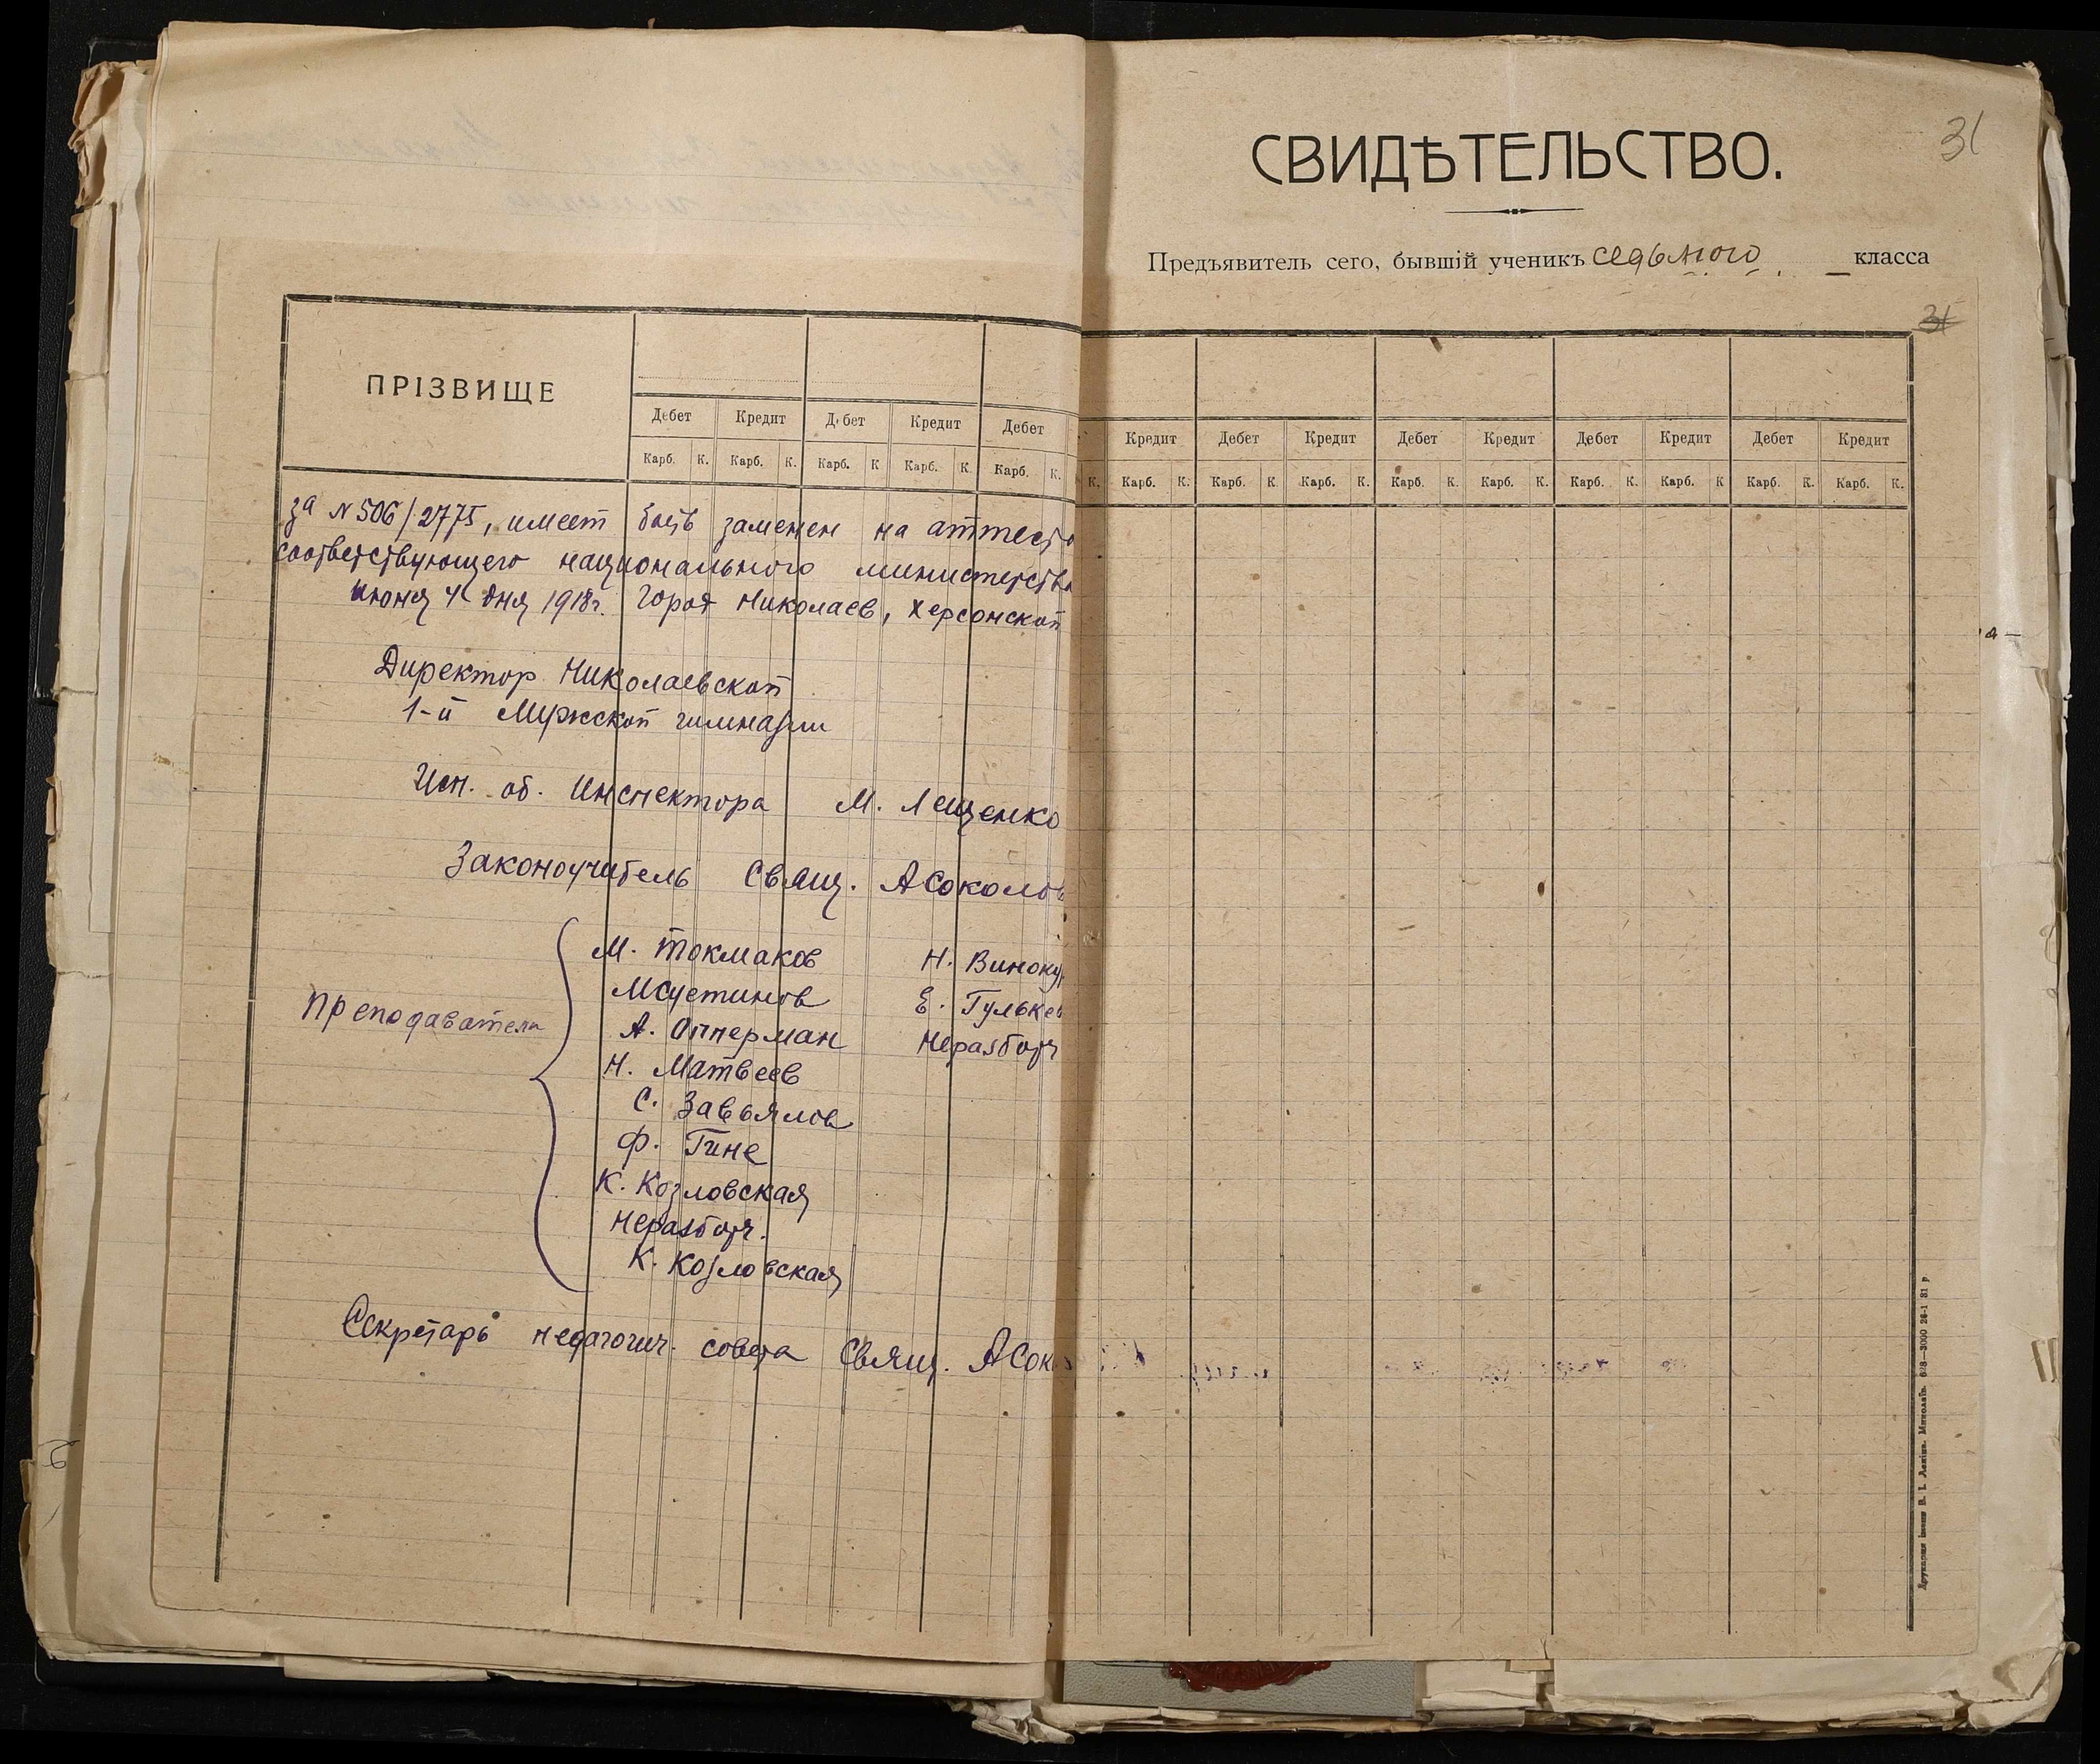 ПРІЗВИЩЕ
Дебет Кредит Дебет Кредит Дебет
Карб. К. Карб. К. Карб. К Карб. К. Карб. К.
за N 506/2775, имеет быть заменен на аттеста
соответствующего национального министерства
июня 4 дня 1918 г. Город Николаев, Херсонской
Директор Николаевской
1-й Мужской гимназии
Исп. об. Инспектора М. Лещенко
Законоучитель Свящ. А Соколов
Преподаватели
М. Токмаков Н. Виноку
МУстинов Е. Гулькев
А. Опперман Неразборч
Н. Матвеев
С. Завьялов
Ф. Гине
К. Козловская
Неразборч.
К. Козловская
Секретарь педагогич. совета Свящ. А Сок
31
СВИДѢТЕЛЬСТВО.
Предъявитель сего, бывшій ученикъ седьмого класса
31
Кредит Дебет Кредит Дебет Кредит Дебет Кредит Дебет Кредит
К. Карб. К. Карб. К. Карб. К. Карб. К. Карб. К. Карб. К. Карб. К Карб. К. Карб. К.
Друкарня імени В. І. Леніна. Миколаїв. 628—3000 26-1 31 р.